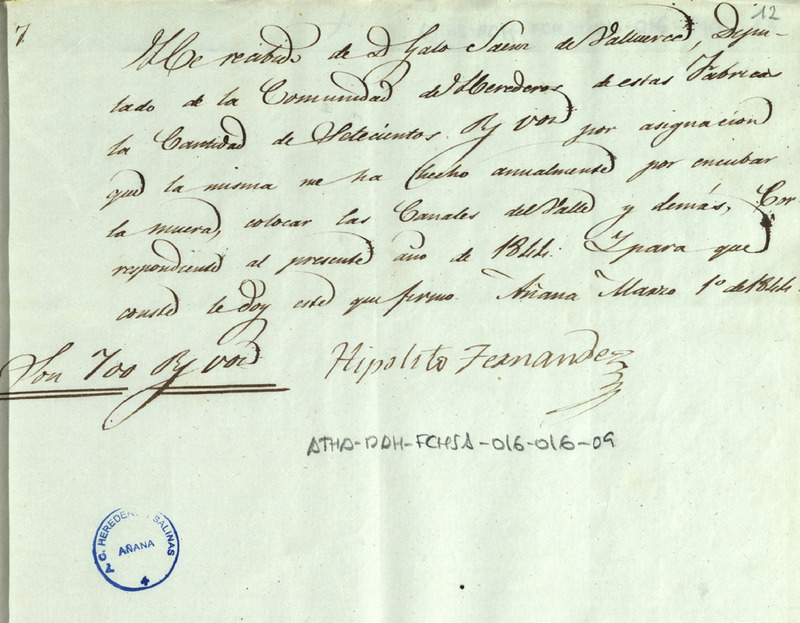 7.
12
He recibido de D Galo Saenz de Valluerca, Dipu-
tado de la Comunidad de Herederos de estas Fabricas
la Cantidad de Setecientos Rs von por asignacion
que la misma me ha hecho anualmente por encubar
la muera, colocar las Canales del Valle y demás, Cor-
respondiente al presente año de 1844. Y para que
conste le doy este que firmo. Añana Marzo 1º de 1844.
Son 700 Rs von
Hipolito Fernandez
ATHA-DAH-FCHSA-016-016-09
C. HEREDEROS SALINAS
AÑANA
4